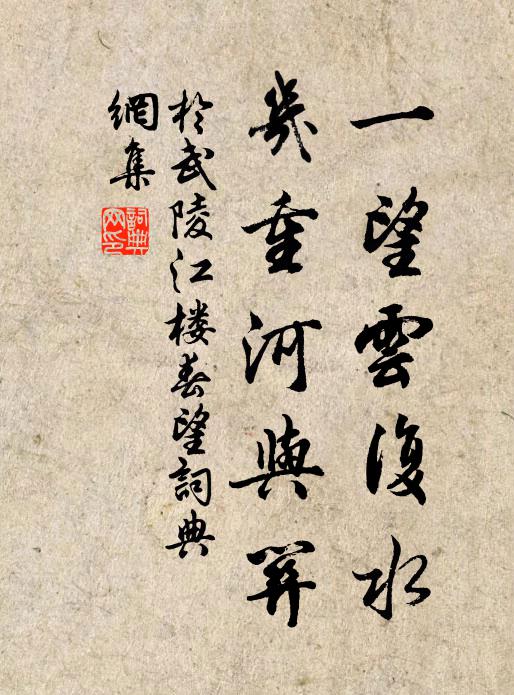 一望雲復水
幾重河與關
於武陵江楼春望詞典
網集
詞典
网印